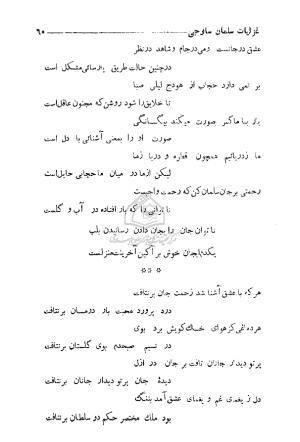 غزلیات سلمان ساوجی ۶۰
عشق در جانست و می در جام و شاهد در نظر
در چنین حالت طریق پارسائی مشکل است
بر نمی دارد حجاب از هودج لیلی صبا
تا خلایق را شود روشن که مجنون عاقل است
با ما گر صورت میکند بیگانگی
صورت او را بمعنی آشنائی با دل است
ما ز دریائیم همچون قطره و دریا زما
لیکن از ما در میان ما حجابی حایل است
رحمتی بر جان سلمان کن که رحمت واجبست
ناتوانی را که بار افتاده در آب و گلست
ناتوان جان را بجان دادن رسانیدن بلب
یکدم ایجان خوش بر آ کین آخرینت منزلست
***
هر که با عشق آشنا شد زحمت جان برنتافت
درد پرورد محبت بار درمان برنتافت
هر دماغی کز هوای خاک کویش برد بوی
در نسیم صبحدم بوی گلستان برنتافت
پرتو دیدار جانان تافت بر جان در ازل
دیدهٔ جان پرتو دیدار جانان برنتافت
دل ز یغمای غم و یغمای عشق آمد بتنگ
بود ملک مختصر حکم دو سلطان برنتافت